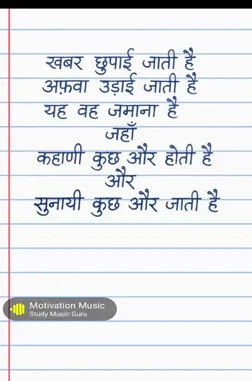 खबर छुपाई जाती है
अफ़वा उड़ाई जाती है
यह वह जमाना है
जहाँ
कहाणी कुछ और होती है
और
सुनायी कुछ और जाती है
Motivation Music
Study Music Guru